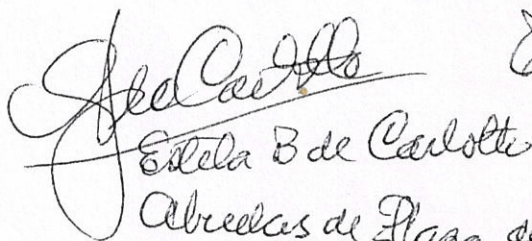 Estela B de Carlotto
Abuelas de Plaza de